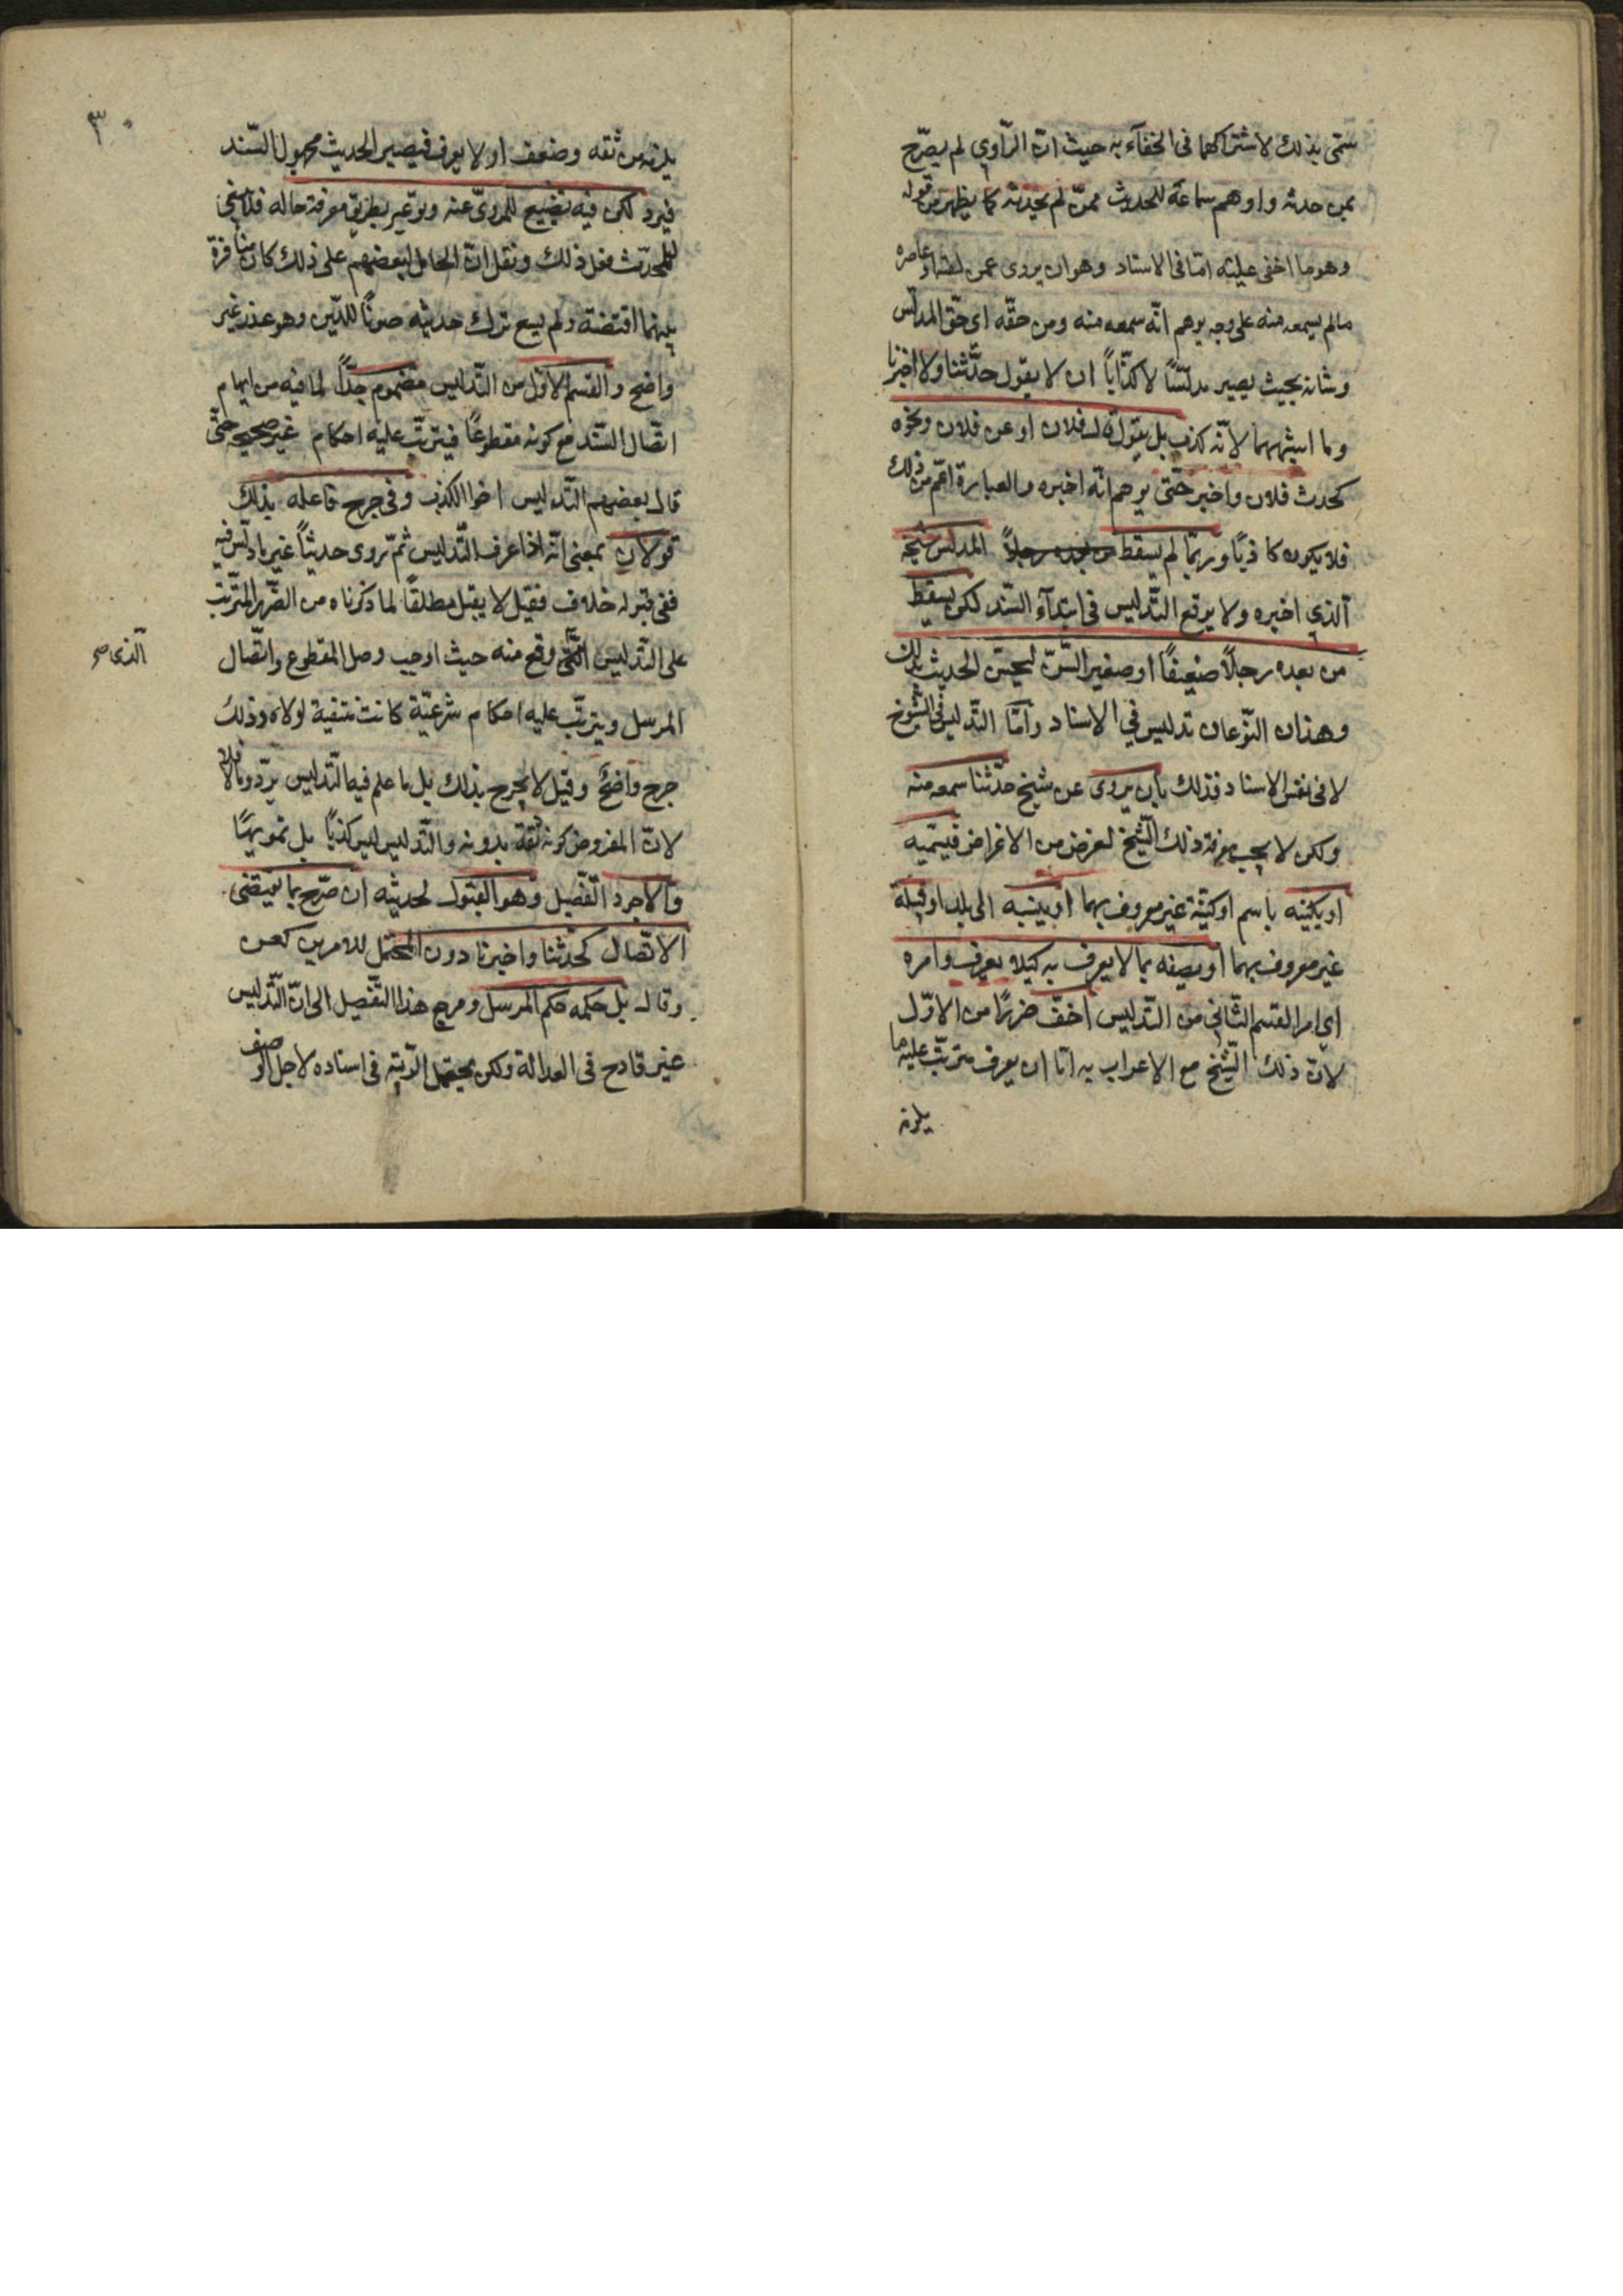 سمّى بذلك لاشتراكهما فى الخفآء به حيث انّ الرّاوي لم يصرّح
بمن حدثه واوهم سماعه للحديث ممّن لم يحدثه كما يظهر من قوله
وهو ما اخفى عيبه امّا فى الاسناد وهو ان يروى عمن لقيه او عاصره
مالم يسمعه منه على وجه يوهم انّه سمعه منه ومن حقّه اى حقّ المدلّس
وشانه بحيث يصير مدلّسًا لا كذّاباً ان لا يقول حدّثنا ولا اخبرنا
وما اشبههما لانّه كذب بل يقول قال فلان او عن فلان ونحوه
كحدث فلان واخبر حتّى يوهم انّه اخبره والعبارة اعمّ من ذلك
فلا يكون كاذبًا وربّما لم يسقط من بعده رجلاً المدلّس شيخه
الّذي اخبره ولا يوقع التّدليس فى ابتدآء السّند لكن يسقط
من بعده رجلاً ضعيفًا او صغير السّنّ ليحسّن الحديث بذلك
وهذان النّوعان تدليس في الاسناد وامّا التّدليس فى الشّيوخ
لا فى نفس الاسناد فذلك بان يروى عن شيخ حدّثنا سمعه منه
ولكن لا يحب معرفة ذلك الشّيخ لغرض من الاغراض فيسمّيه
او يكنّيه باسم او كنية غير معروف بهما او ينسبه الى بلد او قبيلة
غير معروف بهما او يصفه بما لا يعرف به كيلا يعرف وامره
اي امر القسم الثّاني من التّدليس اخفّ ضررًا من الاوّل
لانّ ذلك الشّيخ مع الاعراب به امّا ان يعرف فيترتّب عليه ما
يلزمه
٣٠
يلزمه من ثقه وضعف او لا يعرف فيصير الحديث مجهول السّند
فيرد لكن فيه تضييع للمروىّ عنه وتوعير بطريق معرفة حاله فلا ينبغي
للمحدّث فعل ذلك ونقل انّ الحامل لبعضهم على ذلك كان منافرة
بينهما اقتضته ولم يسع ترك حديثه صونًا للدّين وهو عذر غير
واضح والقسم الاوّل من التّدليس مضموم جدًّا لما فيه من ايهام
اتّصال السّند مع كونه مقطوعًا فيترتّب عليه احكام غير صحيحه حتّى
قال بعضهم التّدليس اخوا الكذب وفى جرح فاعله بذلك
قولان بمعنى انّه اذا عرف التّدليس ثمّ روى حديثاً غير ما دلّس فيه
ففى قبوله خلاف فقيل لا يقبل مطلقًا لما ذكرناه من الضّرر المترتّب
على التّدليس الّتى وقع منه حيث اوجب وصل المقطوع واتّصال
الّذى صح
المرسل ويترتّب عليه احكام شرعيّة كانت منتفية لولاه وذلك
جرح واضح وقيل لا يجرح بذلك بل ما علم فيه التّدليس يردّ ومالا فلا
لانّ المفروض كونه ثقة بدونه والتّدليس ليس كذبًا بل تمويهًا
والاجود التّفصيل وهو القبول لحديثه ان صرّح بما يقتضى
الاتّصال كحدّثنا واخبرنا دون المحتمل للامرين كعن
وقال بل حكمه حكم المرسل ومرجع هذا التّفصيل الى انّ التّدليس
غير قادح فى العدالة ولكن يحتمل الرّيبة فى اسناده لاجل الوصف